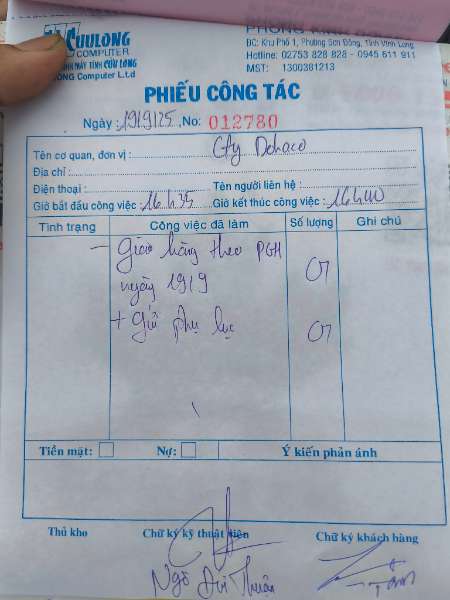 CUULONG
COMPUTER
ĐC: Khu Phố 1, Phường Sơn Đông, Tỉnh Vĩnh Long
Hotline: 02753 828 828 - 0945 611 911
MÁY TÍNH CỬU LONG
ONG Computer L.t.d
MST: 1300381213
PHIẾU CÔNG TÁC
Ngày: 19/9/25, No: 012780
Tên cơ quan, đơn vị: Cty Dohaco
Địa chỉ:
Điện thoại: Tên người liên hệ:
Giờ bắt đầu công việc: 16h35 Giờ kết thúc công việc: 16h40
Tình trạng Công việc đã làm Số lượng Ghi chú
- Giao hàng theo PGH
ngày 19/9 01
+ gửi phụ lục 01
Tiền mặt: Nợ: Ý kiến phản ánh
Thủ kho Chữ ký kỹ thuật viên Chữ ký khách hàng
Ngô Thuận